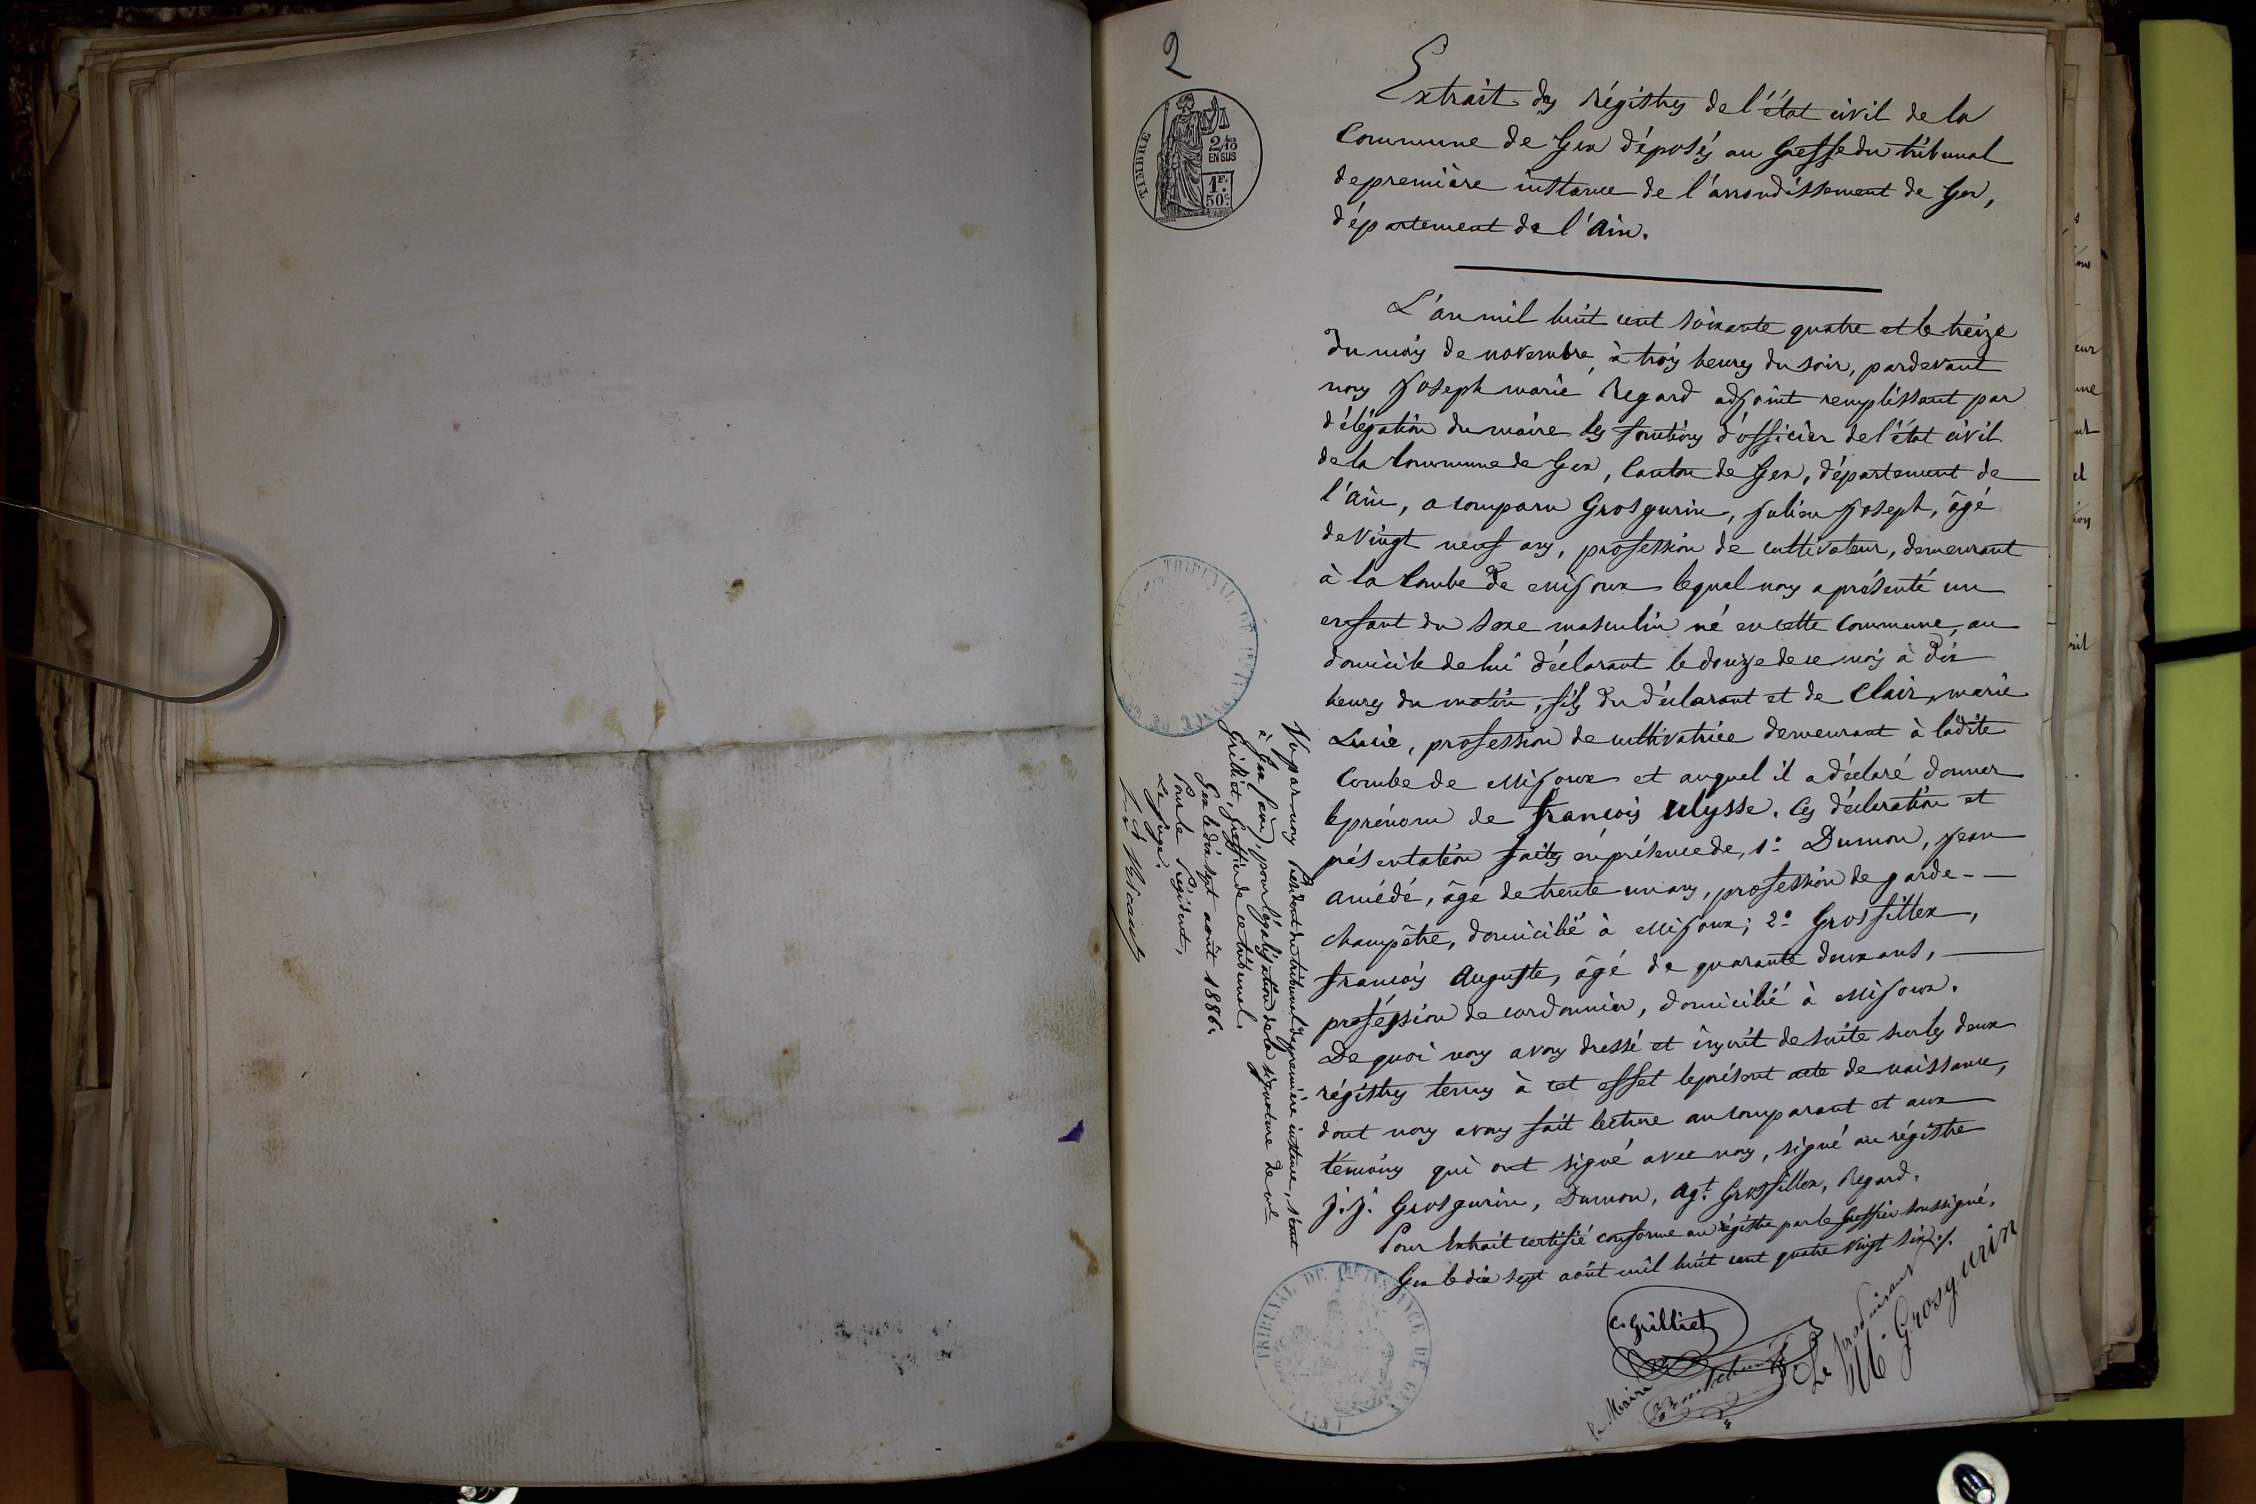 2
TIMBRE
2/10
EN SUS
1F.
50c
Extrait des régistres de l'état civil de la
Commune de Gex déposés au Greffe du tribunal
de première instance de l'arrondissement de Gex,
département de l'Ain.
L'an mil huit cent soixante quatre et le treize
du mois de novembre, à trois heures du soir, pardevant
nous Joseph marie Regard adjoint remplissant par
délégation du maire les fonctions d'officier de l'état civil
de la Commune de Gex, Canton de Gex, département de
l'Ain, a comparu Grosgurin, Julien Joseph, âgé
de vingt neuf ans, profession de cultivateur, demeurant
à la Combe de Mijoux lequel nous a présenté un
enfant du sexe masculin né en cette Commune, au
domicile de lui déclarant le douze de ce mois à dix
heures du matin, fils du déclarant et de Clair, marie
Lucie, profession de cultivatrice demeurant à ladite
Combe de Mijoux et auquel il a déclaré donner
le prénom de françois Ulysse. Ces déclaration et
présentation faites en présence de, 1° Dumon, Jean
amédé, âgé de trente un ans, profession de garde-
champêtre, domicilié à Mijoux; 2° Grosfillex,
françois Auguste, âgé de quarante deux ans,
profession de cordonnier, domicilié à Mijoux.
De quoi nous avons dressé et inscrit de suite sur les deux
régistres tenus à cet effet le présent acte de naissance,
dont nous avons fait lecture au comparant et aux
témoins qui ont signé avec nous, signé au régistre
J. J. Grosgurin, Dumon, Agt. Grosfillex, Regard.
Pour Extrait certifié conforme au régistre par le Greffier soussigné.
Gex le dix sept août mil huit cent quatre vingt six
C. Grilliet
Le Maire
Le produisant
Grosgurin
Vu par nous Président du tribunal de première instance, séant
à Gex (ain), pour légalisation de la signature de Me
Grilliet, Greffier de ce tribunal.
Gex le dix sept août 1886.
Pour le Président,
Le Juge:
TRIBUNAL DE
TRIBUNAL DE 1ère INSTANCE DE GEX